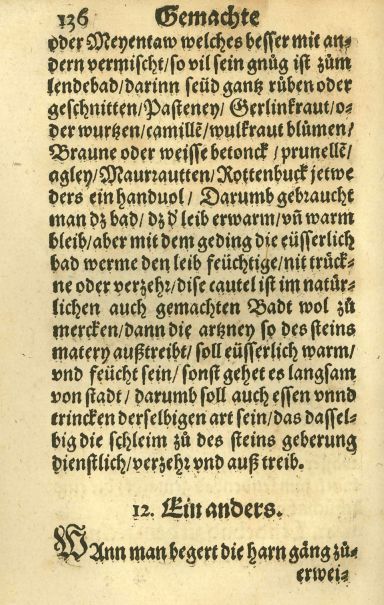 136 Gemachte
oder Meyentaw welches besser mit an-
dern vermischt/so vil sein gnůg ist zům
lendebad/darinn seüd gantz růben oder
geschnitten/Pasteney/Gerlinkraut/o-
der wurtzen/camillē/wulkraut blůmen/
Braune oder weisse betonck/prunellē/
agley/Maurrautten/Rottenbuck jetwe
ders ein handuol/ Darumb gebraucht
man dz bad/dz d' leib erwarm/vñ warm
bleib/aber mit dem geding die eüsserlich
bad werme den leib feüchtige/nit trück-
ne oder verzehr/dise cautel ist im natür-
lichen auch gemachten Badt wol zů
mercken/dann die artzney so des steins
matery außtreibt/soll eüsserlich warm/
vnd feücht sein/sonst gehet es langsam
von stadt/ darumb soll auch essen vnnd
trincken derselbigen art sein/das dassel-
big die schleim zů des steins geberung
dienstlich/verzehr vnd auß treib.
12. Ein anders.
WAnn man begert die harn gång zů-
erwei-